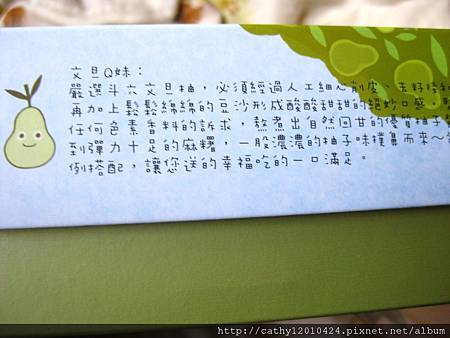 文旦Q妹：
嚴選斗六文旦柚，必須經過人工細心削皮、去籽
再加上鬆鬆綿綿的豆沙形成酸酸甜甜的絕妙口感。
任何色素香料的訴求，熬煮出自然回甘的優質柚子
到彈力十足的麻糬，一股濃濃的柚子味撲鼻而來～
例搭配，讓您送的幸福吃的一口滿足。
http://cathy12010424.pixnet.net/album